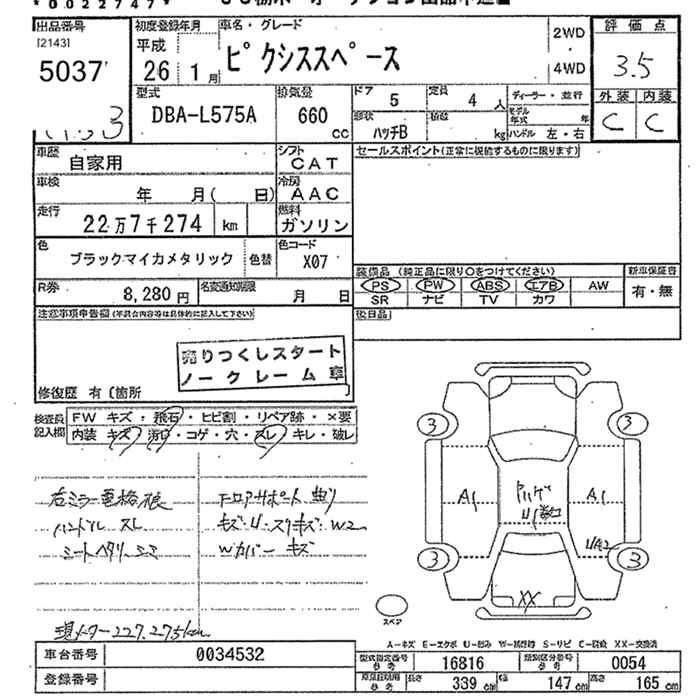 * 0022747 *
出品番号 初度登録年月 車名・グレード 2WD 評価点
[2143] 平成 ピクシススペース
5037 26 1月 4WD 3.5
型式 排気量 ドア 5 定員 4人 ディーラー・並行 外装 内装
DBA-L575A 660cc 形状 ハッチB 積載 kg モデル年式 年 C C
ハンドル 左・右
車歴 自家用 シフト CAT セールスポイント(正常に視認するものに限ります)
車検 年 月( 日) 冷房 AAC
走行 22万7千274 km 燃料 ガソリン
色 ブラックマイカメタリック 色替 色コード X07
装備品 (純正品に限り○をつけてください) 新車保証書
R券 8,280円 名変通知期限 月 日 PS PW ABS エアB AW 有・無
SR ナビ TV カワ
注意事項申告欄 後日品
売りつくしスタート
ノークレーム車
修復歴 有〔箇所 〕
検査員記入欄 FW キズ・飛石・ヒビ割・リペア跡・×要
内装 キズ・汚れ・コゲ・穴・スレ・キレ・破レ
3 3
右ミラー フロアサポート 曲り
ハンドル スレ キズ・U・スリキズ W2
シートヘタリ Wカバー キズ
A1 A1
3 3
XX
スペア
現メーター 227.275km
A-キズ E-エクボ U-凹み XX-交換済
車台番号 0034532 型式指定番号 参考 16816 類別区分番号 参考 0054
登録番号 長さ 339cm 幅 147cm 高さ 165cm